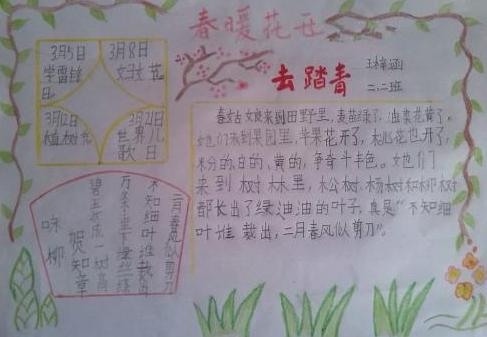 春暖花开
去踏青
王梓涵
二.二班
3月5日
学雷锋
日
3月8日
妇女节
3月12日
植树节
3月21日
世界儿
歌日
春姑娘来到田野里，麦苗绿了，油菜花黄了。
她们来到果园里，苹果花开了，桃花也开了，
粉的、白的、黄的，争奇斗卡色。她们
来到树林里，松树、杨树和柳树
都长出了绿油油的叶子，真是“不知细
叶谁裁出，二月春风似剪刀”。
咏柳
贺知章
碧玉妆成一树高
万条垂下绿丝绦
不知细叶谁裁出
二月春风似剪刀